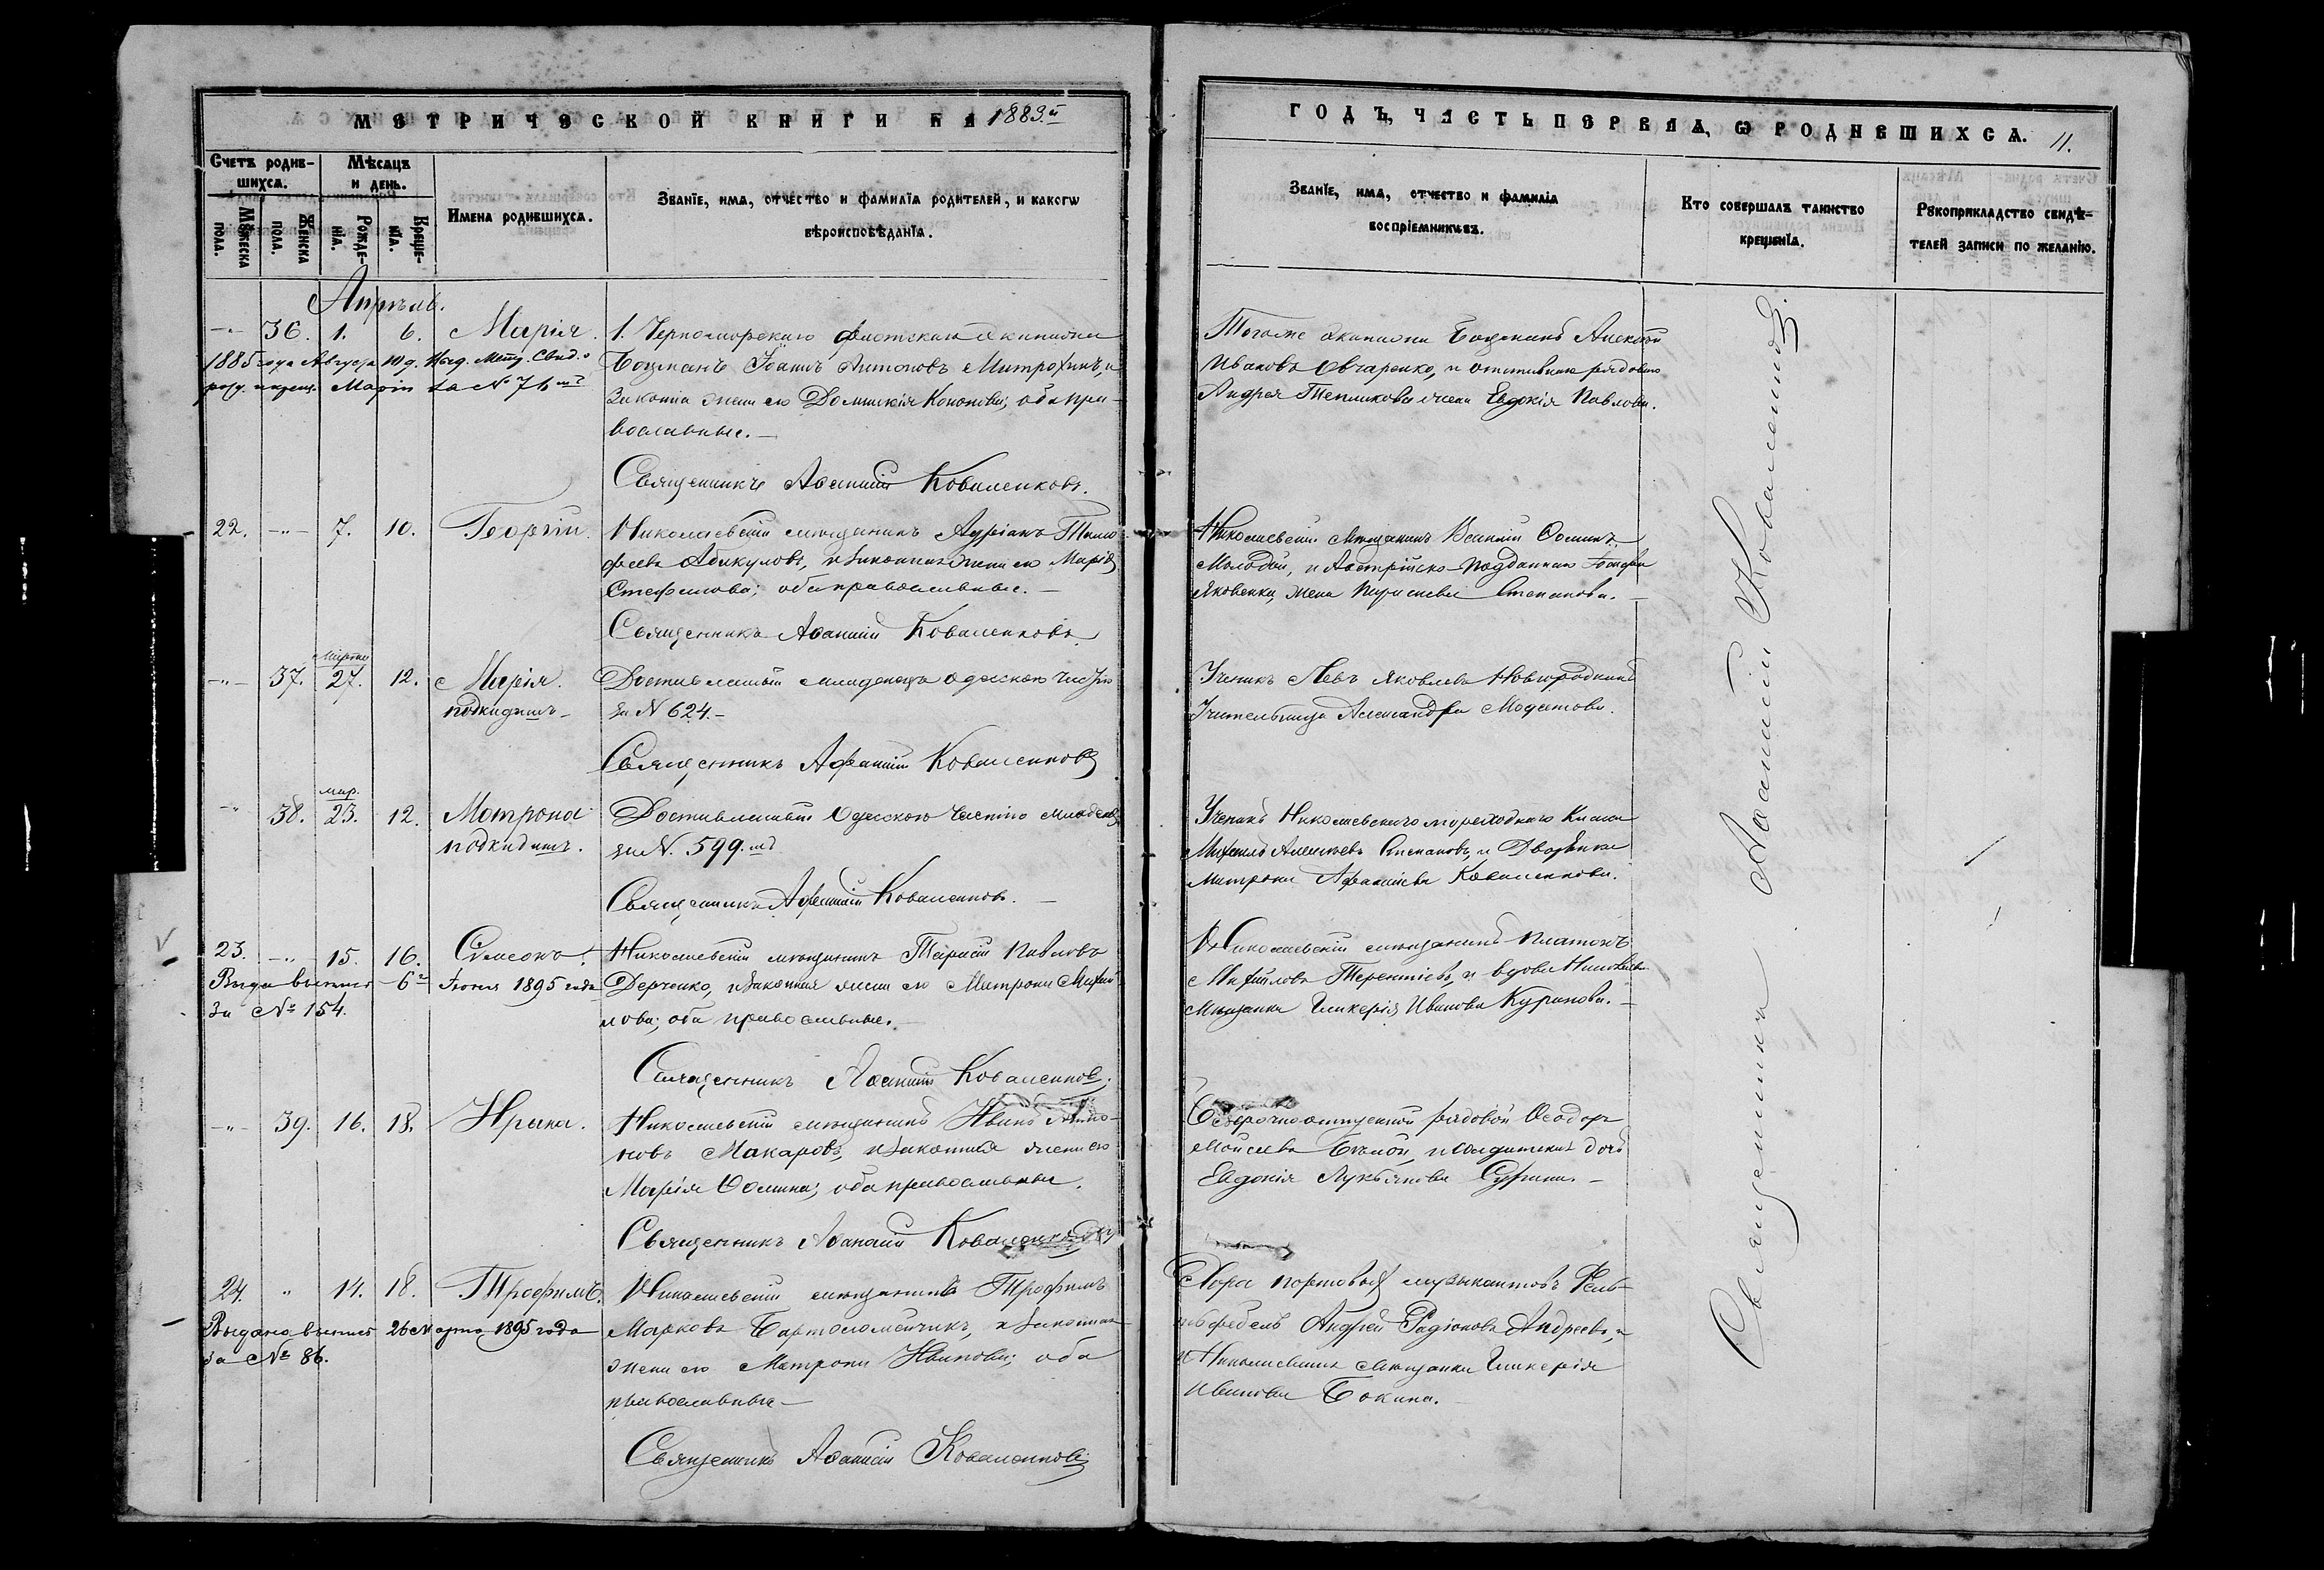 МЕТРИЧЕСКОЙ КНИГИ НА 1883.й
ГОДЪ, ЧАСТЬ ПЕРВАЯ, Ѡ РОДИВШИХСЯ. 11.
Счетъ родив-
шихся.
Мѣсяцъ
и день.
Мужеска
пола.
Женска
пола.
Рожде-
нія.
Креще-
нія.
Имена родившихся.
Званїе, имя, отчество и фамилїя родителей, и какогѡ
вѣроисповѣданїя.
Званїе, имя, отчество и фамилія
воспріемникѡвъ.
Кто совершалъ таинство
крещенїя.
Рукоприкладство свидѣ-
телей записи по желанію.
Апрѣль.
-"- 36. 1. 6. Марія.
1885 года Августа 10 д. Выд. Метр. Свид. о
рожд. и крещ. Маріи за № 71
1. Черноморскаго флотскаго экипажа
Боцманъ Іоаннъ Антоновъ Митрохинъ, и
законная жена его Домникія Кононова; оба пра-
вославные.—
Священникъ Аѳанасій Коваленковъ.
Тогоже экипажа Боцманъ Алексѣй
Ивановъ Овчаренко, и отставнаго рядоваго
Андрея жена Евдокія Павлова.
22. -"- 7. 10. Георгій.
Николаевскій мѣщанинъ Адріанъ Тимо-
феевъ Абакумовъ, и законная жена его Марія
Стефанова; оба православные.—
Священникъ Аѳанасій Коваленковъ
Николаевскій мѣщанинъ Василій Осиповъ
Молодой, и Австрійско-подданнаго
Яковенки, жена Параскева Степанова.—
-"- 37. Марта 27. 12. Марія.
подкидышъ-
Доставленный младенецъ одесскою частію
за N 624.-
Священникъ Афанасій Коваленковъ
Ученикъ Левъ Яковлевъ
Учительница Александра Модестова.
-"- 38. мар. 23. 12. Матрона
подкидышъ.
Доставленный Одесскою частію младенецъ
за N. 599.
Священникъ Афанасій Коваленковъ.—
Ученикъ Николаевскаго мореходнаго Класса
Михаилъ Алексѣевъ Степановъ, и Дворянка
Матрона Афанасьева Коваленкова.
23. -"- 15. 16. Симеонъ.
Выда выпись 6го Іюня 1895 года
За № 154.
Николаевскій мѣщанинъ Тарасій Павловъ
Дерченко, и законная жена его Матрона Михай-
лова; оба православные.—
Священникъ Аѳанасій Коваленковъ.
Николаевскій мѣщанинъ Платонъ
Михайловъ Терентіевъ, и вдова Николаев.
Мѣщанка Гликерія Иванова Куранова.—
-"- 39. 16. 18. Ирина.
Николаевскій мѣщанинъ Иванъ
новъ Макаровъ, и законная жена его
Марія Осипова; оба православные.
Священникъ Аѳанасій Коваленковъ
Безсрочноотпускной рядовой Ѳеодоръ
Моисеевъ Бѣлой, и солдатская дочь
Евдокія Лукьянова —
24. " 14. 18. Трофимъ.
Выдана выпись 26 Марта 1895 года
За № 86.
Николаевскій мѣщанинъ Трофимъ
Марковъ Бартоломейчикъ, и законная
жена его Матрона Иванова; оба
православные—
Священникъ Аѳанасій Коваленковъ
Хора портовыхъ музыкантовъ Фельд-
фебель Андрей Радіоновъ Андреевъ, и
Николаевская мѣщанка Гликерія
Иванова Бокина.
Священникъ Аѳанасій Коваленковъ.